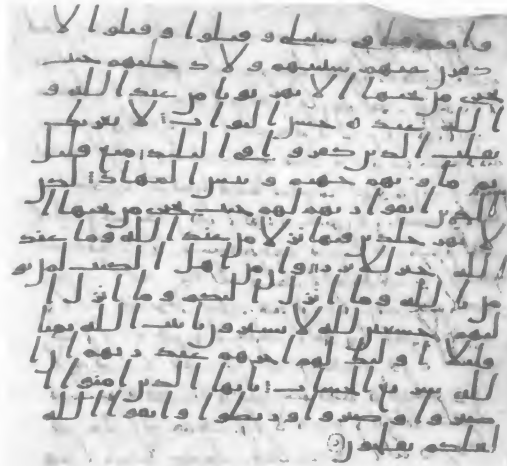 واوذوا في سبيلي وقتلوا وقتلوا لا
كفرن عنهم سيتهم ولا دخلنهم جنت
تجري من تحتها الانهر ثوبا من عند الله و
الله عنده حسن الثواب لا يغرنك
تقلب الذين كفروا في البلد متع قليل
ثم ماويهم جهنم وبيس المهاد لكن
الذين اتقوا ربهم لهم جنت تجري من تحتها ا
لانهر خلدين فيها نزلا من عند الله وما عند
الله خير للابرار وان من اهل الكتب لمن يو
من بالله وما انزل اليكم وما انزل ا
ليهم خشعين لله لا يشترون بايت الله ثمنا
قليلا اوليك لهم اجرهم عند ربهم ان ا
لله سريع الحساب يايها الذين امنوا ا
صبروا وصبروا وربطوا واتقوا الله
لعلكم تفلحون